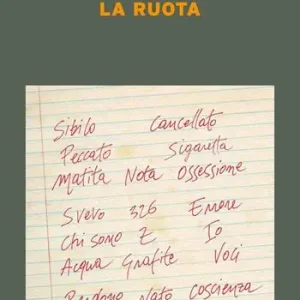 LA RUOTA
Sibilo Cancellato
Peccato Sigaretta
Matita Nota Ossessione
Svevo 326 Errore
Chi sono Z Io
Acqua Grafite Voci
Perdono Nato coscienza